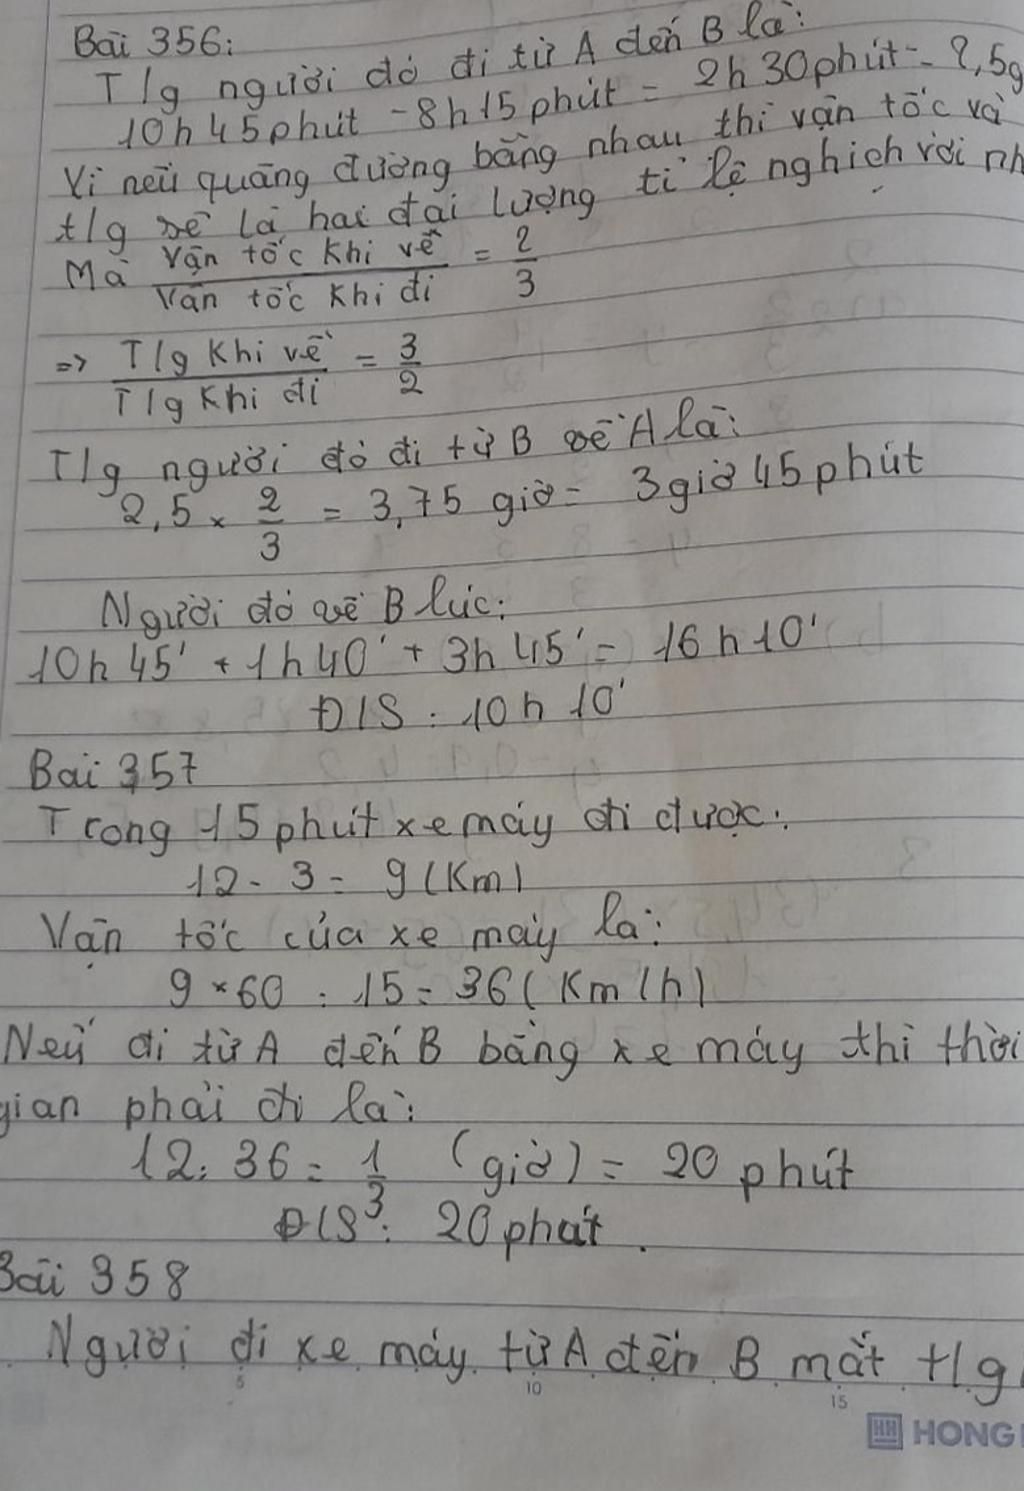 Bài 356:
T/g người đó đi từ A đến B là:
10h 45 phút - 8h 15 phút = 2h 30 phút = 2,5g
Vì nếu quãng đường bằng nhau thì vận tốc và
t/g sẽ là hai đại lượng tỉ lệ nghịch với nh
Mà Vận tốc khi về / Vận tốc khi đi = 2/3
=> T/g khi về / T/g khi đi = 3/2
T/g người đó đi từ B về A là:
2,5 x 2/3 = 3,75 giờ = 3 giờ 45 phút
Người đó về B lúc:
10h 45' + 1h 40' + 3h 45' = 16h 10'
Đ/S: 10h 10'
Bài 357
Trong 15 phút xe máy đi được:
12 - 3 = 9 (Km)
Vận tốc của xe máy là:
9 x 60 : 15 = 36 (Km/h)
Nếu đi từ A đến B bằng xe máy thì thời
gian phải đi là:
12 : 36 = 1/3 (giờ) = 20 phút
Đ/S: 20 phút.
Bài 358
Người đi xe máy từ A đến B mất t/g
5 10 15
HONG